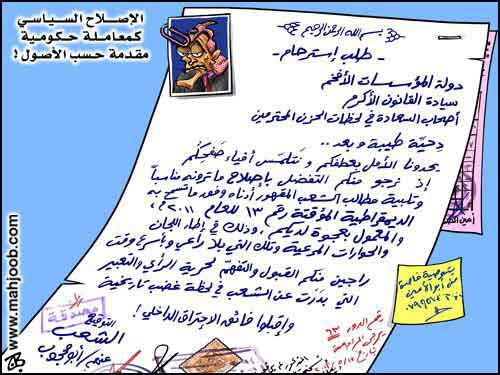 الإصلاح السياسي
كمعاملة حكومية
مقدمة حسب الأصول !
بسم الله الرحمن الرحيم
- طلب إسترحام -
دولة المؤسسات الأفخم
سيادة القانون الأكرم
أصحاب السعادة في لحظات الحزن المحترمين
تحية طيبة وبعد ..
يحدونا الأمل بعطفكم ونتلمس أفياء صفحكم
إذ نرجو منكم التفضل بإصلاح ما ترونه مناسباً
وتلبية مطالب الشعب المقهور أدناه وفقد ما تسمح به
الديمقراطية المؤقتة رقم ١٣ للعام ٢٠١١م،
والمعمول بعجوة لديكم، وذلك في إطار اللجان
والحوارات المرعية وتلك التي بلا راعي وبأسرع وقت
راجين منكم القبول والتفهّم لحرية الرأي والتعبير
التي بدَرَت عن الشعب في لحظة غضب تاريخية
وإقبلوا فائق الاحتراق الداخلي !
التوقيع
الشعب
عنهم / أبو محجوب
مصدقة
بتوصية خاصة
من
رقم الدور ٦٣
www.mahjoob.com